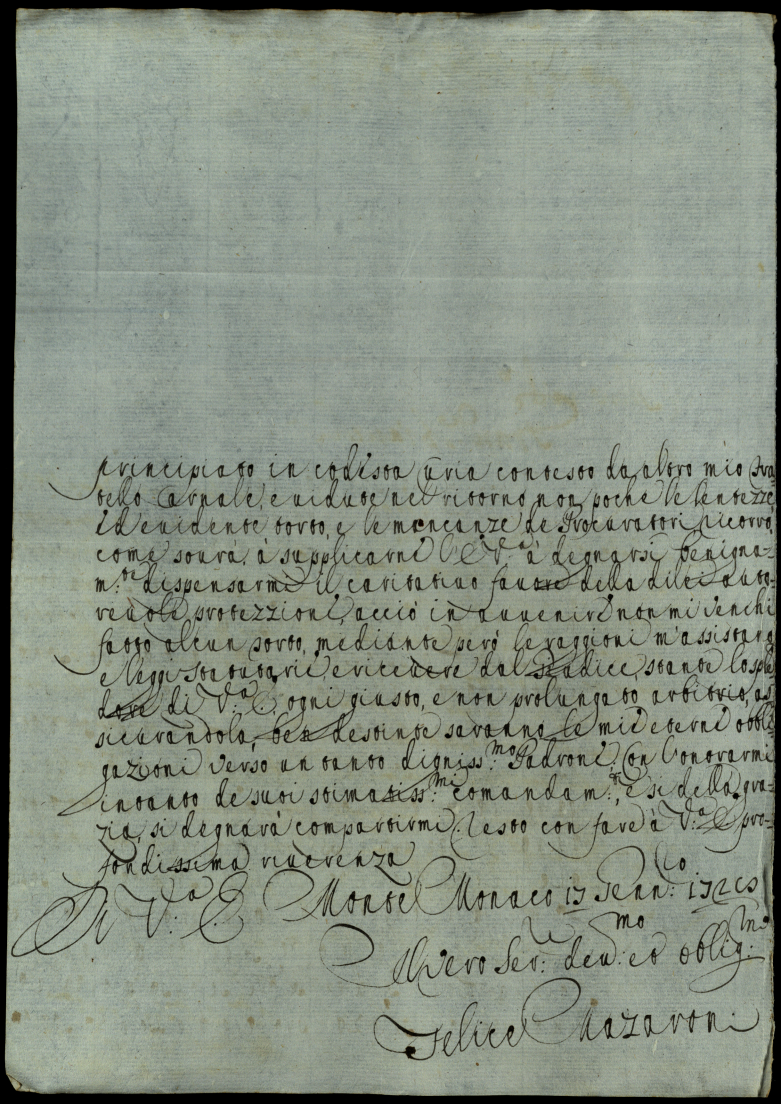 principiato in codesta Curia contesto da altro mio Fra-
tello Carnale, e vidute nel ritorno non poche le lentezze
ed evidente torto, e le mancanze de Procuratori, ricorro,
come sovra, a supplicarne l'E V.ª à degnarsi benigna-
m.te dispensarmi il caritativo favore della di lei auto-
revole protezzione, acciò in avvenire non mi venchi
fatto alcun torto, mediante però le raggioni m'assistano
e leggi statutarie, e ricevere dal Giudice, stante lo sple-
dore di V.ª E. ogni giusto, e non prolungato arbitrio, as-
sicurandola, ben destinte saranno le mie eterni obbli-
gazioni verso un tanto digniss.mo Padrone. Con l'onorarmi
intanto de suoi stimatiss.mi comandam.ti, E si della gra-
zia, si degnarà compartirmi. Resto con fare à V.ª E. pro-
fondissima riverenza
Di V.ª E. Monte Monaco 17 Genn.ro
Vero Ser.re dev.mo ed oblig.mo
Felice Mazaroni